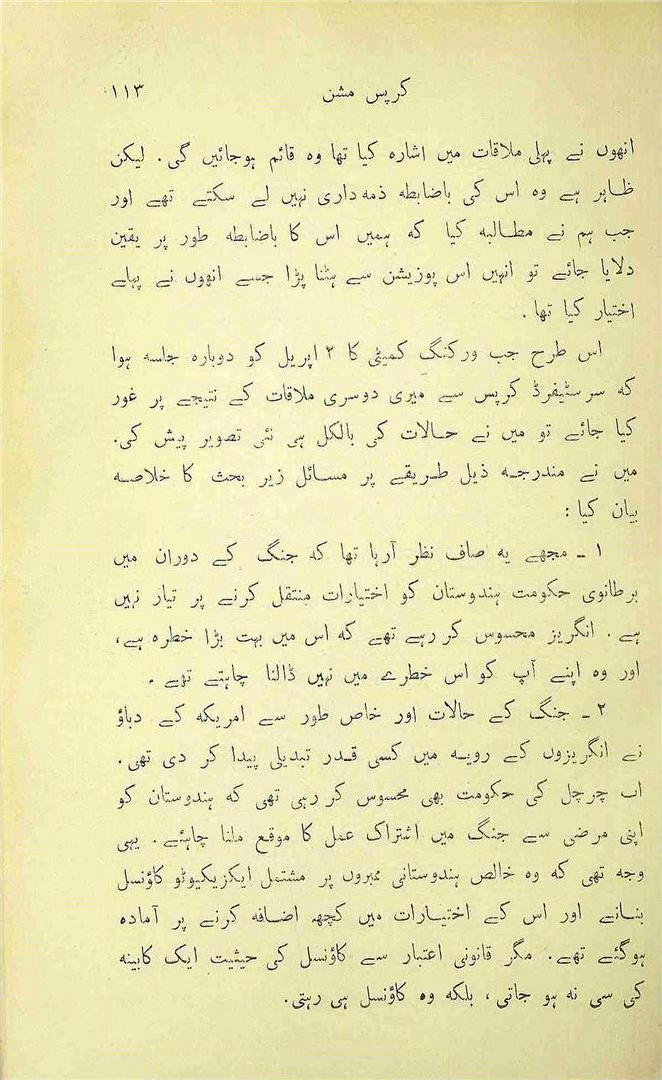 کرپس مشن ۱۱۳
انھوں نے پہلی ملاقات میں اشارہ کیا تھا وہ قائم ہوجائیں گی. لیکن
ظاہر ہے وہ اس کی باضابطہ ذمہ داری نہیں لے سکتے تھے اور
جب ہم نے مطالبہ کیا کہ ہمیں اس کا باضابطہ طور پر یقین
دلایا جائے تو انہیں اس پوزیشن سے ہٹنا پڑا جسے انھوں نے پہلے
اختیار کیا تھا.
اس طرح جب ورکنگ کمیٹی کا ۲ اپریل کو دوبارہ جلسہ ہوا
کہ سر سٹیفرڈ کرپس سے میری دوسری ملاقات کے نتیجے پر غور
کیا جائے تو میں نے حالات کی بالکل ہی نئی تصویر پیش کی.
میں نے مندرجہ ذیل طریقے پر مسائل زیر بحث کا خلاصہ
بیان کیا:
۱ ـ مجھے یہ صاف نظر آرہا تھا کہ جنگ کے دوران میں
برطانوی حکومت ہندوستان کو اختیارات منتقل کرنے پر تیار نہیں
ہے. انگریز محسوس کر رہے تھے کہ اس میں بہت بڑا خطرہ ہے،
اور وہ اپنے آپ کو اس خطرے میں نہیں ڈالنا چاہتے تھے.
۲ ـ جنگ کے حالات اور خاص طور سے امریکہ کے دباؤ
نے انگریزوں کے رویہ میں کسی قدر تبدیلی پیدا کر دی تھی.
اب چرچل کی حکومت بھی محسوس کر رہی تھی کہ ہندوستان کو
اپنی مرضی سے جنگ میں اشتراک عمل کا موقع ملنا چاہئے. یہی
وجہ تھی کہ وہ خالص ہندوستانی ممبروں پر مشتمل ایکزیکیوٹو کاؤنسل
بنانے اور اس کے اختیارات میں کچھ اضافہ کرنے پر آمادہ
ہوگئے تھے. مگر قانونی اعتبار سے کاؤنسل کی حیثیت ایک کابینہ
کی سی نہ ہو جاتی، بلکہ وہ کاؤنسل ہی رہتی.